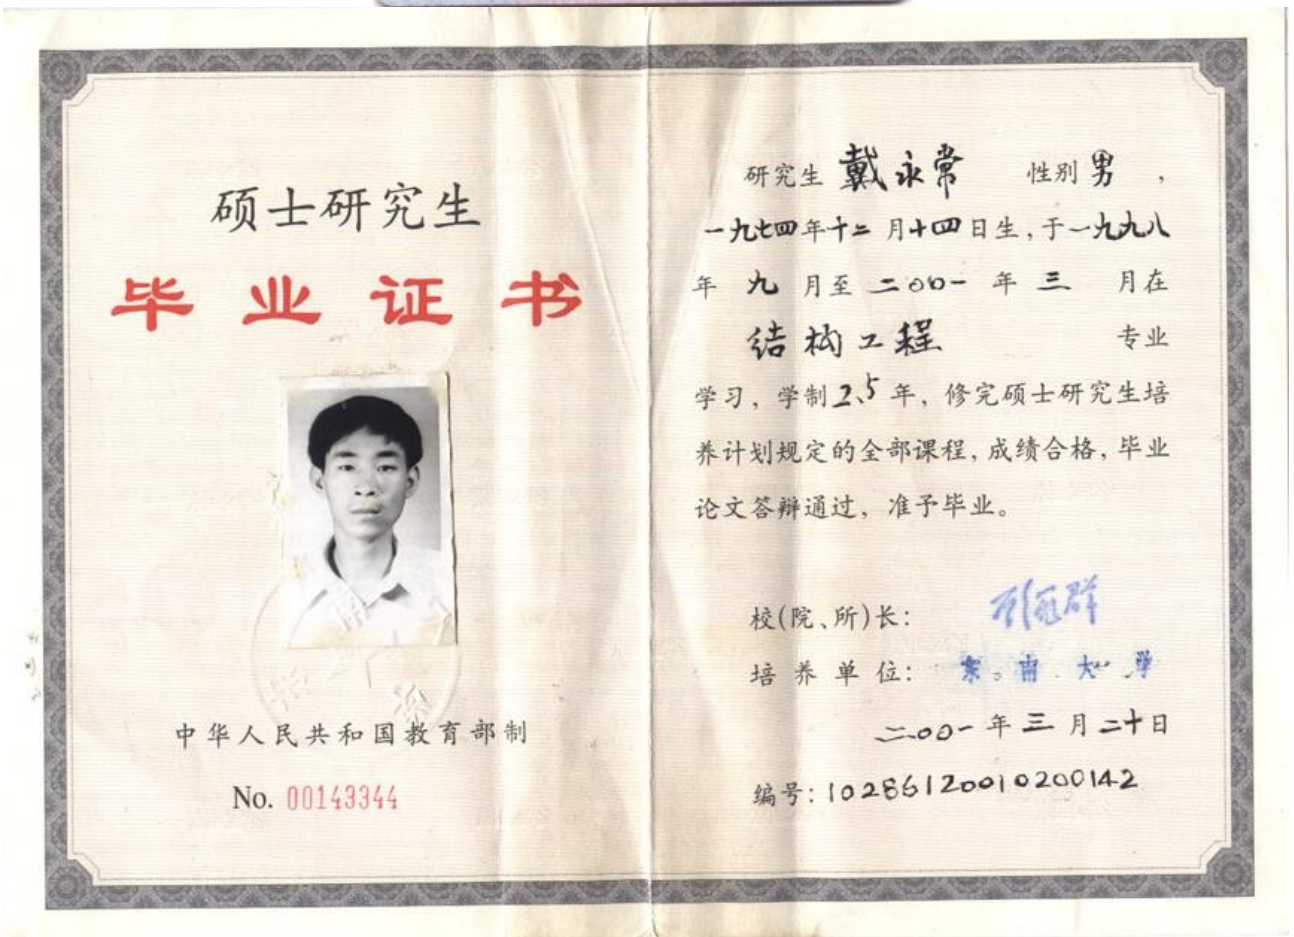 硕士研究生
毕业证书
中华人民共和国教育部制
No. 00143344
研究生 戴永常 性别 男 ，
一九七四年十二月十四日生，于一九九八
年 九 月至 二〇〇一 年 三 月在
结构工程 专业
学习，学制 2.5 年，修完硕士研究生培
养计划规定的全部课程，成绩合格，毕业
论文答辩通过，准予毕业。
校(院、所)长：
培养单位： 东南大学
二〇〇一年三月二十日
编号：10286120010200142